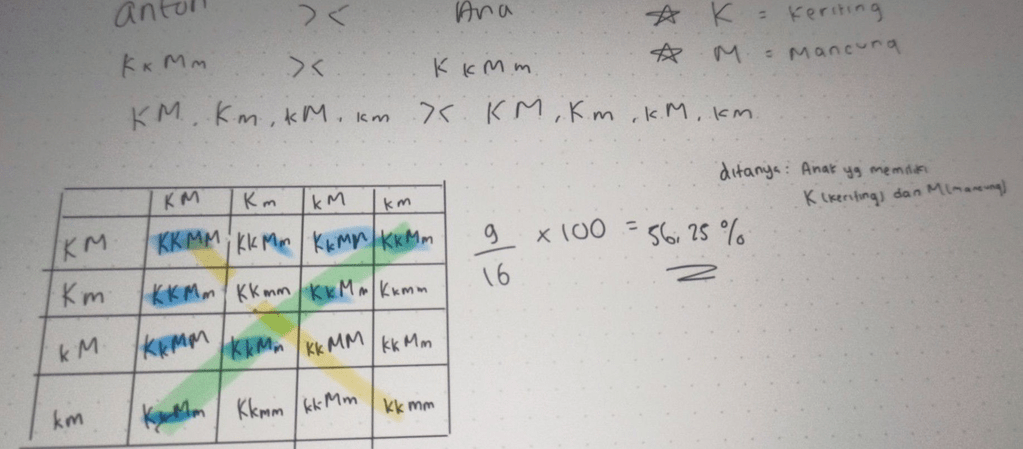 anton >< Ana ☆ K = Keriting
KkMm >< KkMm ☆ M = Mancung
KM, Km, kM, km >< KM, Km, kM, km
ditanya: Anak yg memiliki
K (keriting) dan M (mancung)
KM Km kM km
KM KKMM KKMm KkMM KkMm
Km KKMm KKmm KkMm Kkmm
kM KkMM KkMm kkMM kkMm
km KkMm Kkmm kkMm kkmm
9/16 × 100 = 56,25 %